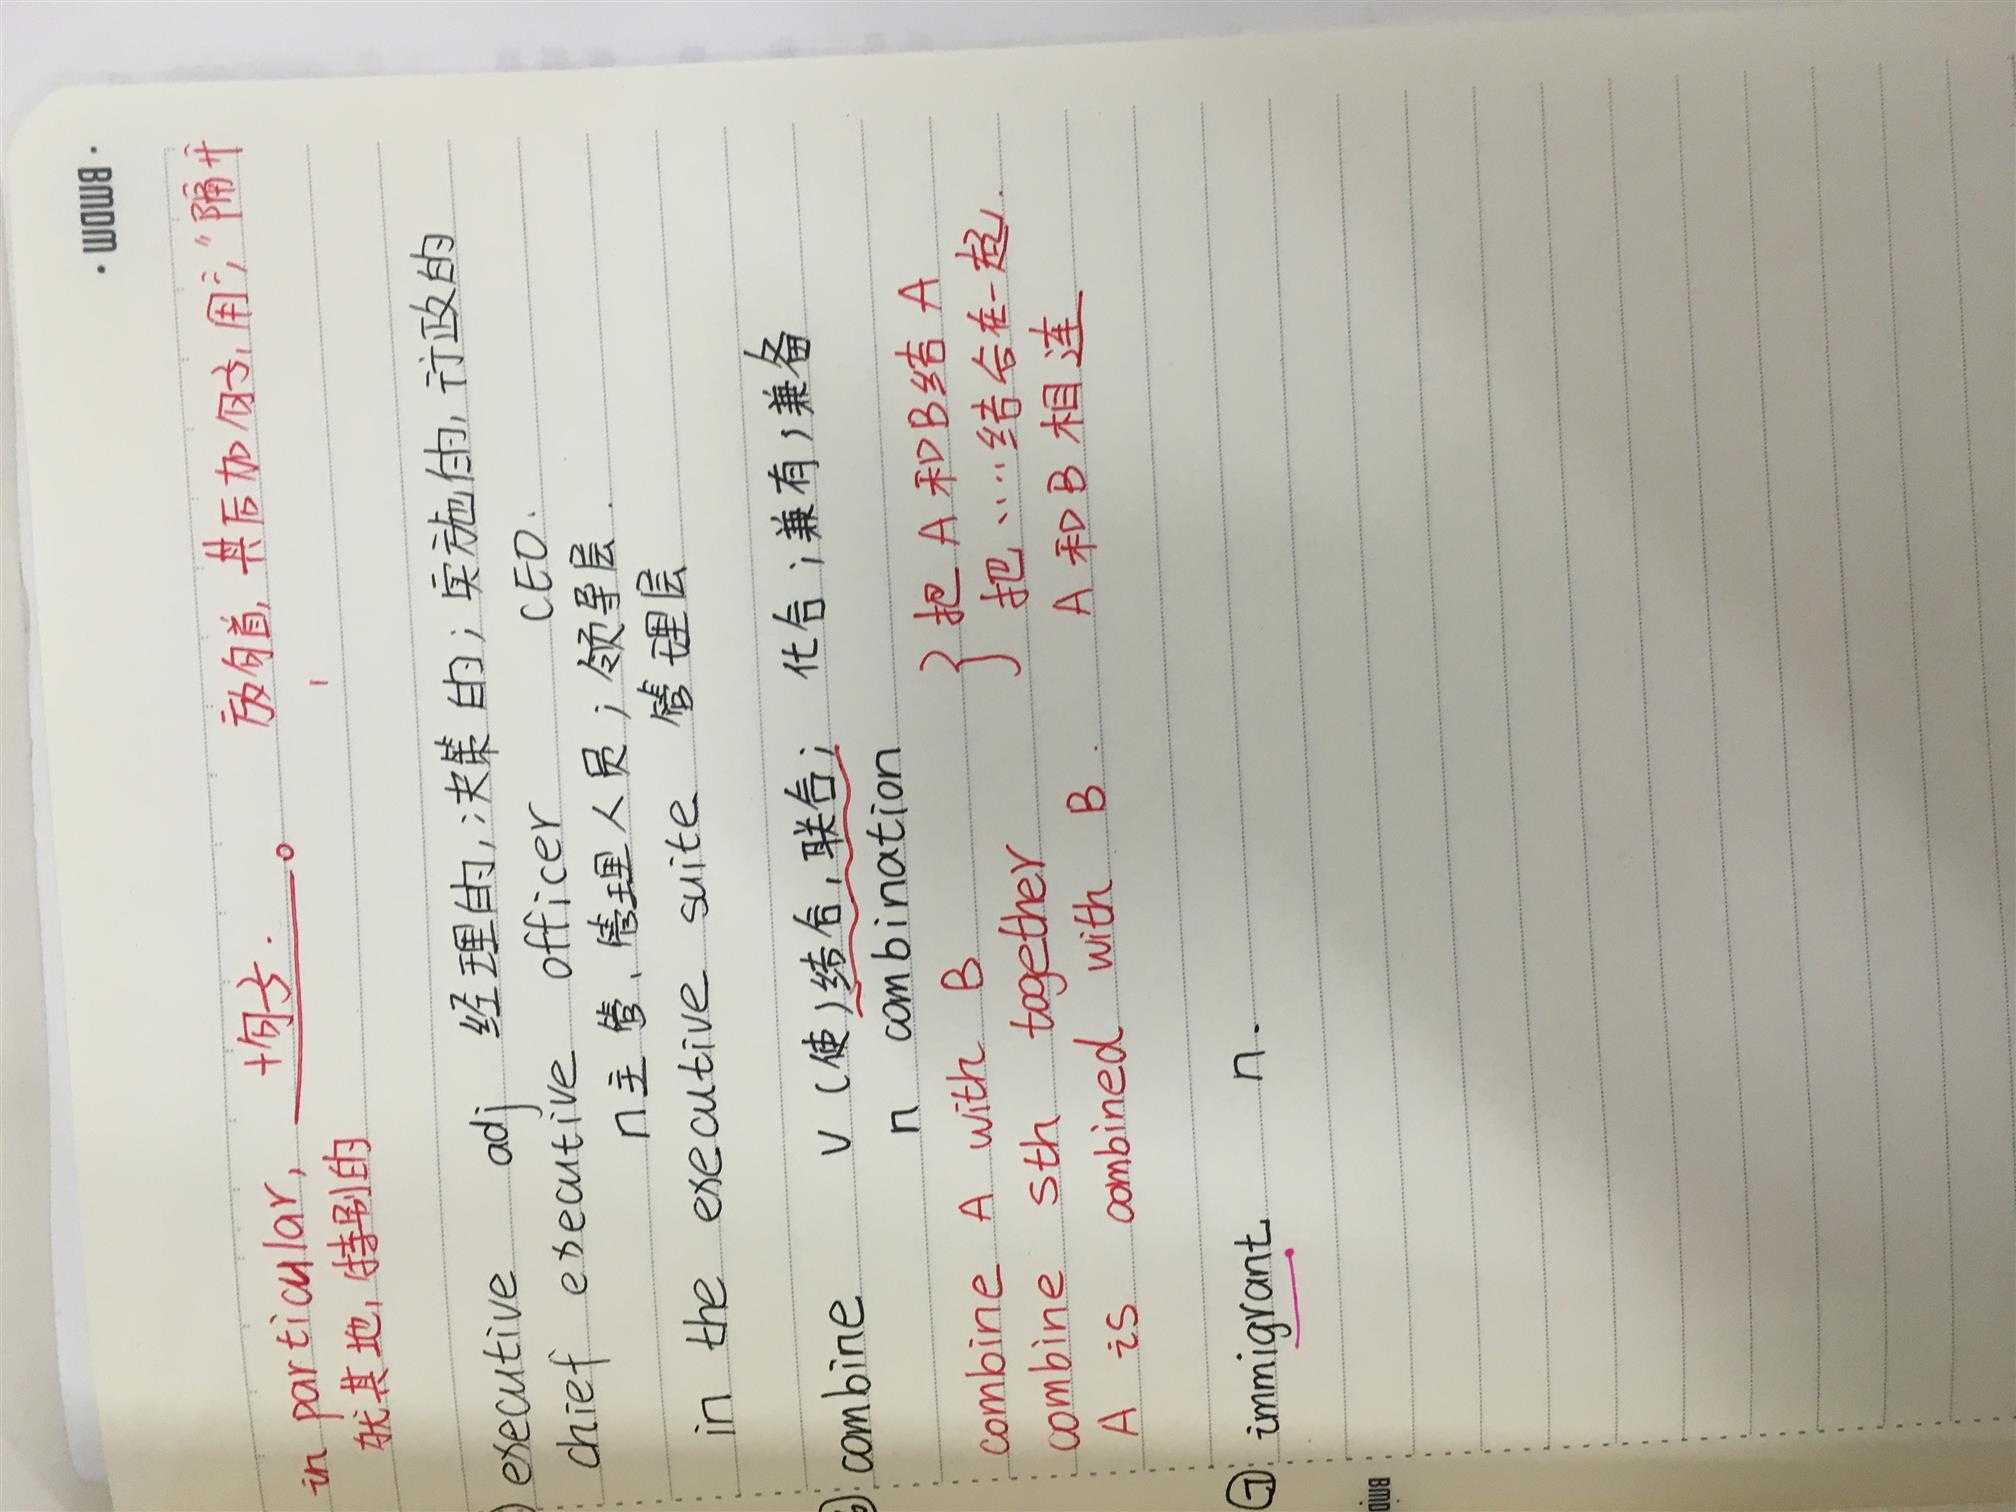 ·BMDM·
in particular, +句子. 放句首, 其后加句子, 用";"隔开
尤其地, 特别的
executive adj 经理的,决策的;实施的,行政的
chief executive officer CEO.
n主管、管理人员;领导层.
in the executive suite 管理层
combine v (使)结合,联合; 化合;兼有,兼备
n combination
combine A with B } 把A和B结A
combine sth together 把……结合在一起.
A is combined with B. A和B相连
⑦ immigrant n.